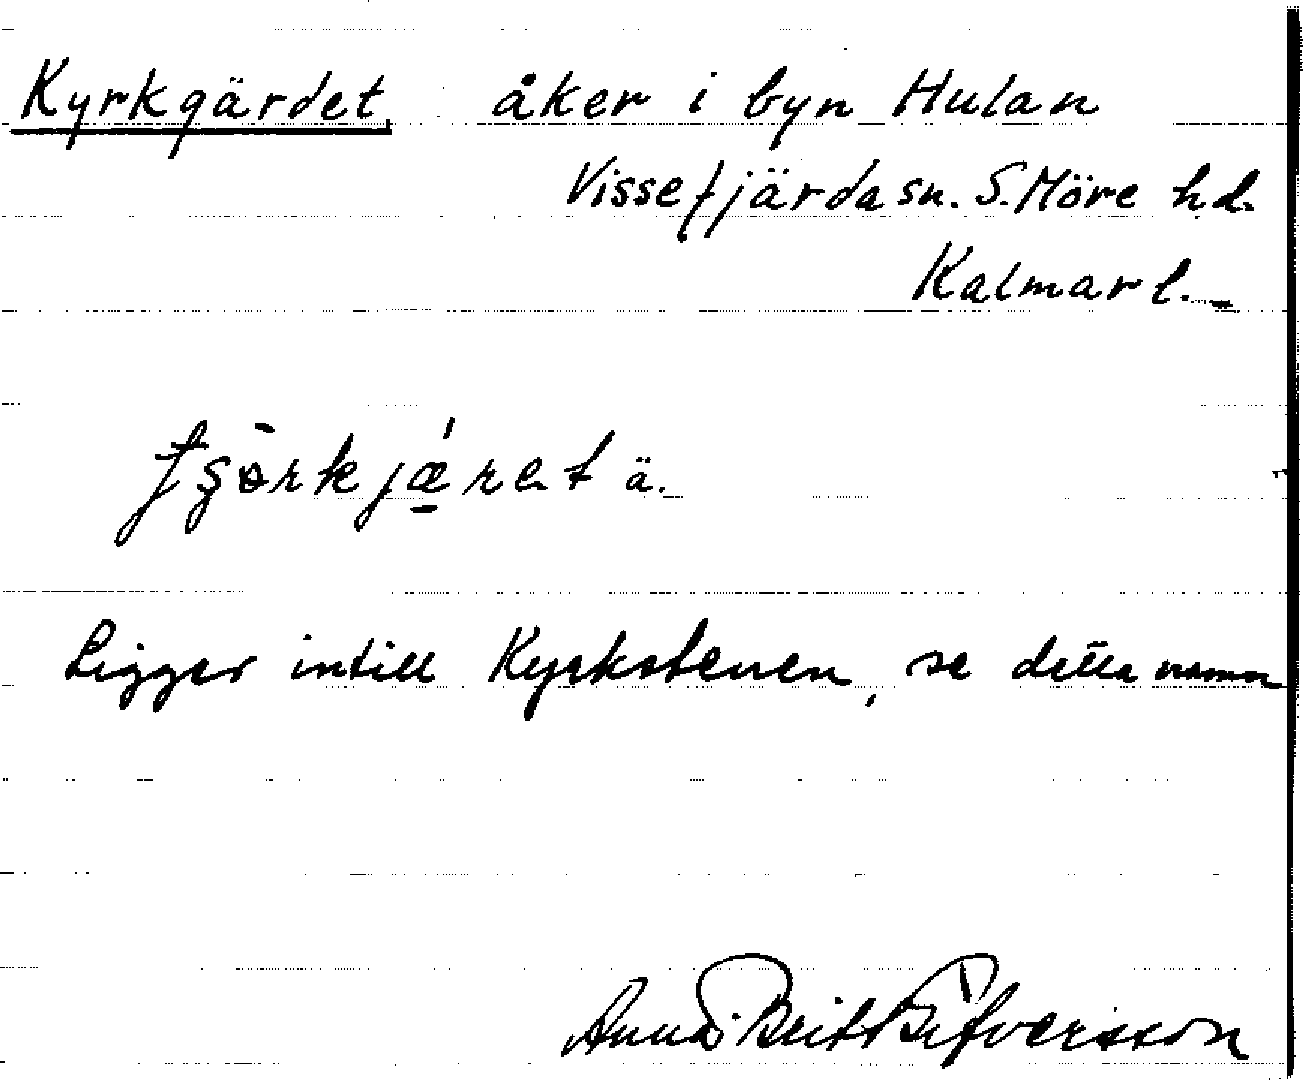 Kyrkgärdet, åker i byn Hulan
Vissefjärda sn. S. Möre h.d.
Kalmar l.
ä.
Ligger intill Kyrkstenen, se detta namn
Anna Britt